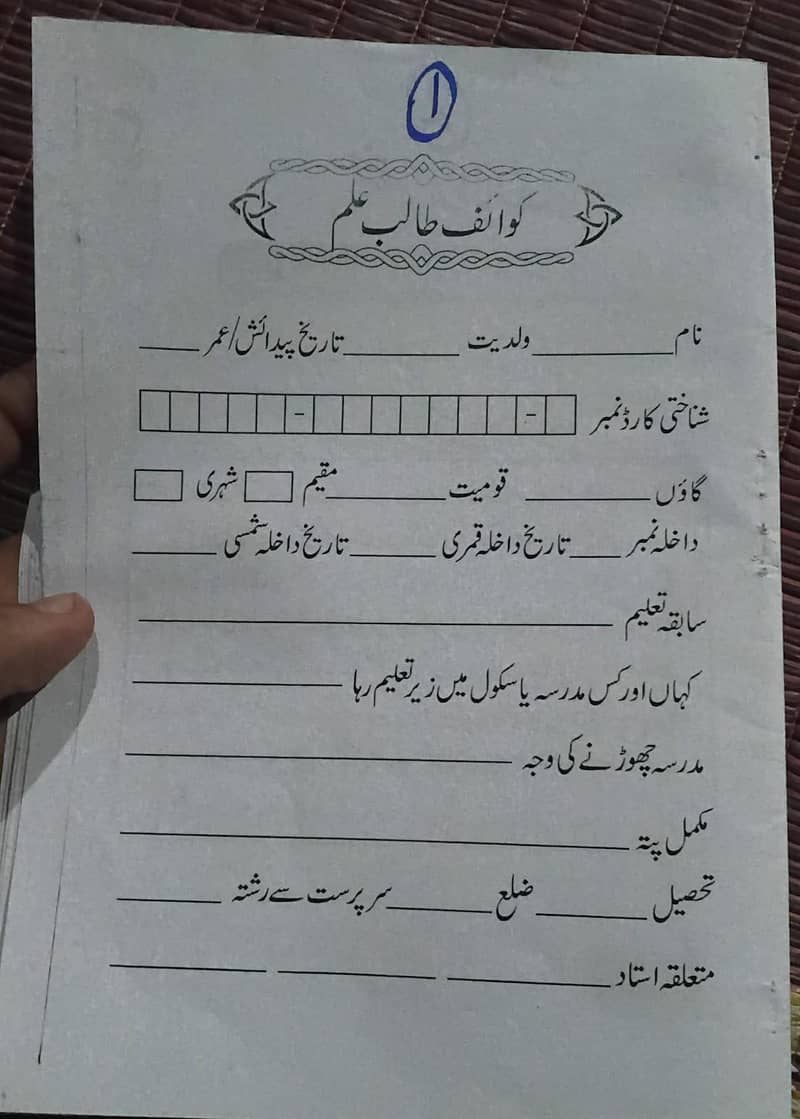 ۱
کوائف طالب علم
نام ____________ ولدیت ____________ تاریخ پیدائش/عمر ______
شناختی کارڈ نمبر - -
گاؤں ____________ قومیت ____________ مقیم شہری
داخلہ نمبر _____ تاریخ داخلہ قمری ________ تاریخ داخلہ شمسی ________
سابقہ تعلیم ________________________
کہاں اور کس مدرسہ یا سکول میں زیر تعلیم رہا ____________
مدرسہ چھوڑنے کی وجہ ________________________
مکمل پتہ ________________________
تحصیل __________ ضلع __________ سرپرست سے رشتہ __________
متعلقہ استاد ____________ ____________ ____________